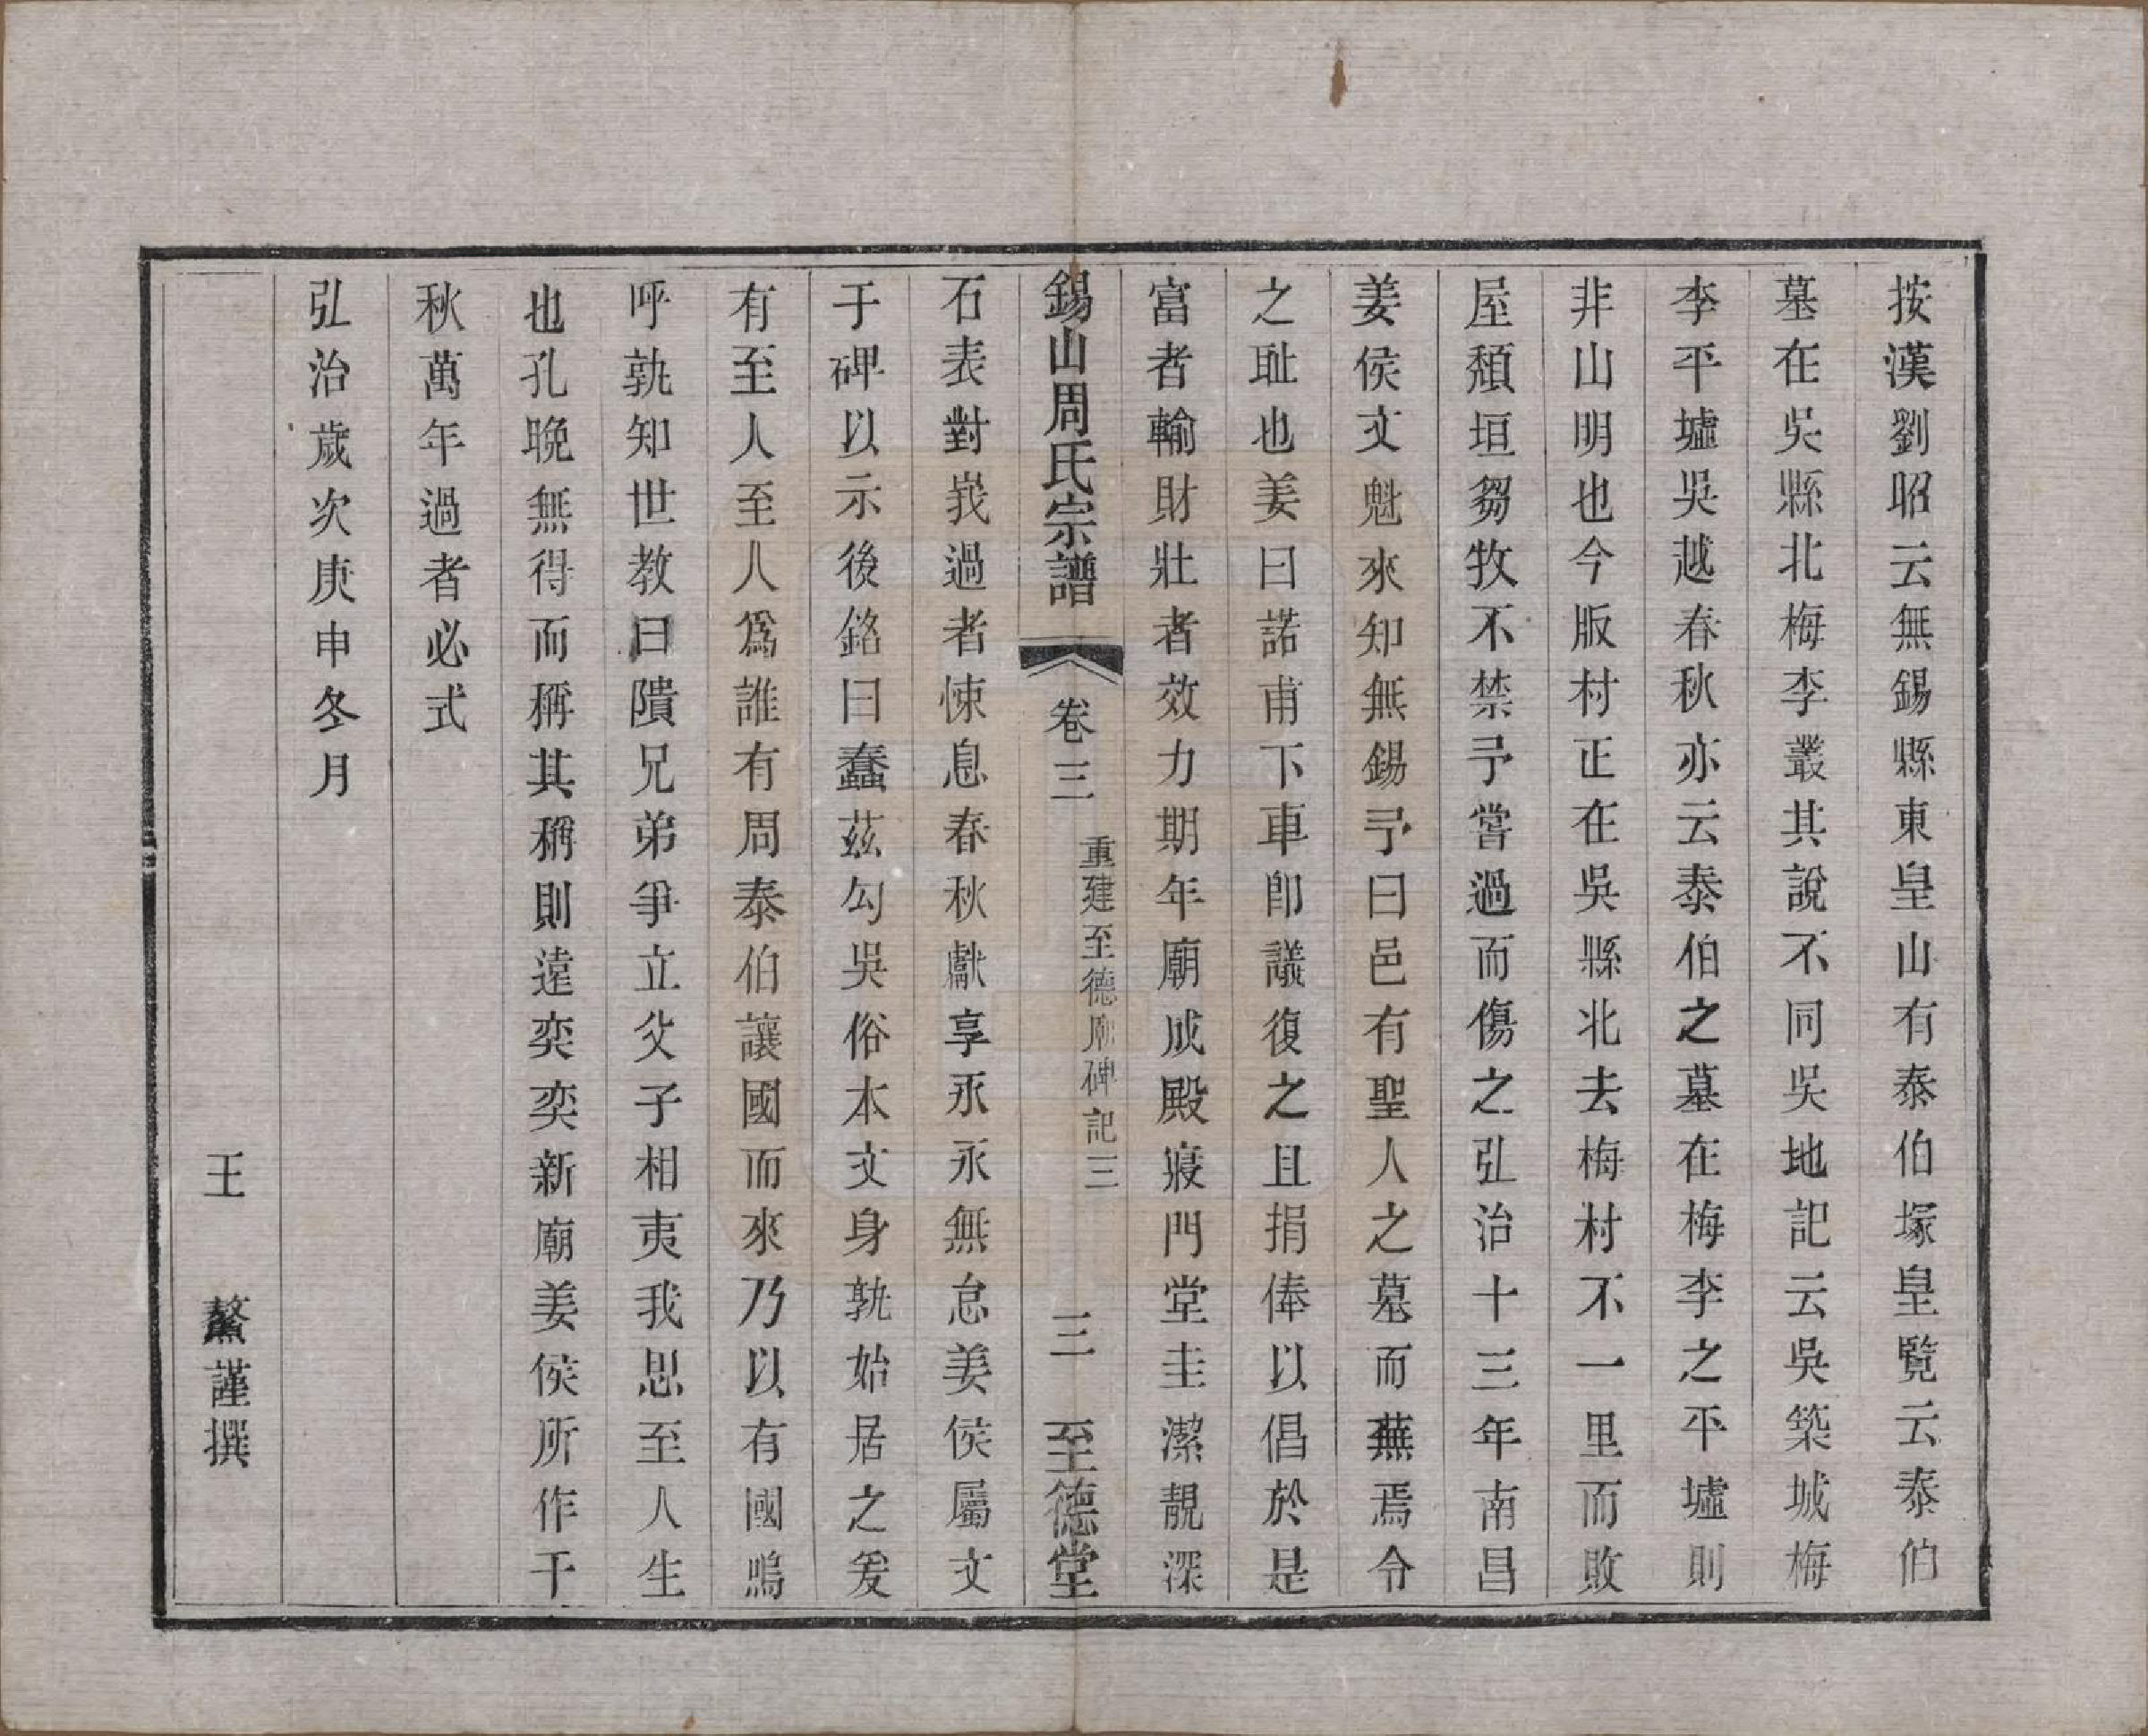 按漢劉昭云無錫縣東皇山有泰伯塚皇覽云泰伯
墓在吳縣北梅李叢其說不同吳地記云吳築城梅
李平墟吳越春秋亦云泰伯之墓在梅李之平墟則
非山明也今版村正在吳縣北去梅村不一里而敗
屋頹垣芻牧不禁予嘗過而傷之弘治十三年南昌
姜侯文魁來知無錫予曰邑有聖人之墓而蕪焉令
之耻也姜曰諾甫下車卽議復之且捐俸以倡於是
富者輸財壯者效力期年廟成殿寢門堂圭潔靚深
錫山周氏宗譜 卷三 重建至德廟碑記三 三 至德堂
石表對峩過者悚息春秋獻享永永無怠姜侯屬文
于碑以示後銘曰蠢茲勾吳俗本文身孰始居之爰
有至人至人爲誰有周泰伯讓國而來乃以有國嗚
呼孰知世教曰隤兄弟爭立父子相夷我思至人生
也孔晚無得而稱其稱則遠奕奕新廟姜侯所作千
秋萬年過者必式
弘治歲次庚申冬月
王 鏊謹撰